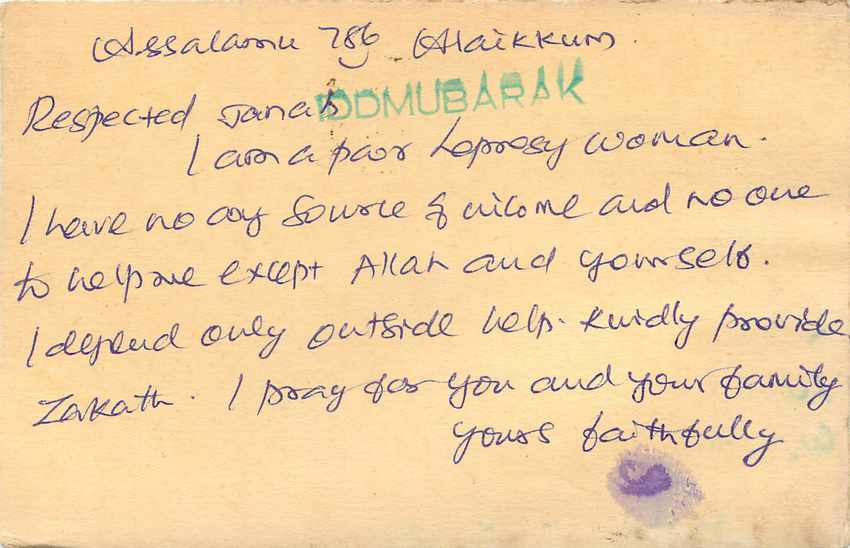 Assalamu 786 Alaikkum.
IDDMUBARAK
Respected Janab
I am a poor Leprosy woman.
I have no any source of income and no one
to help me except Allah and yourself.
I depend only outside help. Kindly provide
Zakath. I pray for you and your family
yours faithfully